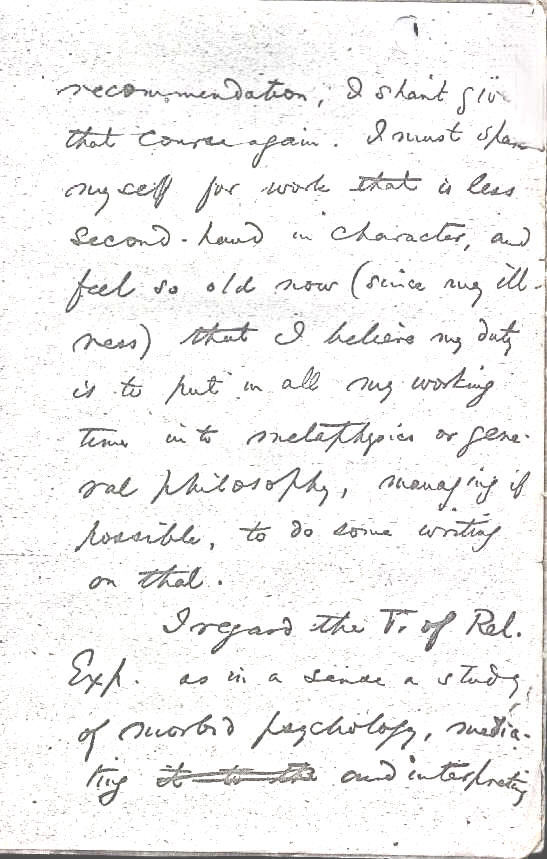 recommendation, I shan't giv
that course again. I must spare
myself for work that is less
second-hand in character, and
feel so old now (since my ill-
ness) that I believe my duty
is to put in all my working
time into metaphysics or gene-
ral philosophy, managing if
possible, to do some writing
on that.
I regard the V. of Rel.
Exp. as in a sense a study
of morbid psychology, media-
ting it to the and interpreting